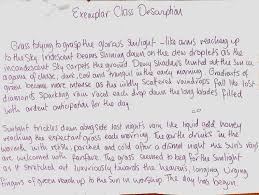 Exemplar Class Description
Grass trying to grasp the glorious sunlight - like arms reaching up
to the sky. Iridescent beams shining down on the dew droplets as the
incandescent sky carpets the ground. Dewy shadows hunted out the sun in
a game of chase; dark, cool and tranquil in the early morning. Gradients of
green become more intense as the wildly scattered raindrops fall like lost
diamonds. Sparkling dew races each drop down the long blades filled
with ardent anticipation for the day.
Sunlight trickles down alongside last night's rain like liquid gold honey
reaching the expectant grass each morning. The earth drinks in the
warmth with relish; parched and cold after a dismal night the sun's rays
are welcomed with fanfare. The grass seemed to beg for the sunlight
as it stretched out luxuriously towards the heavens, longing. Urging
fingers of green reach up to the Sun in worship. The day has begun.